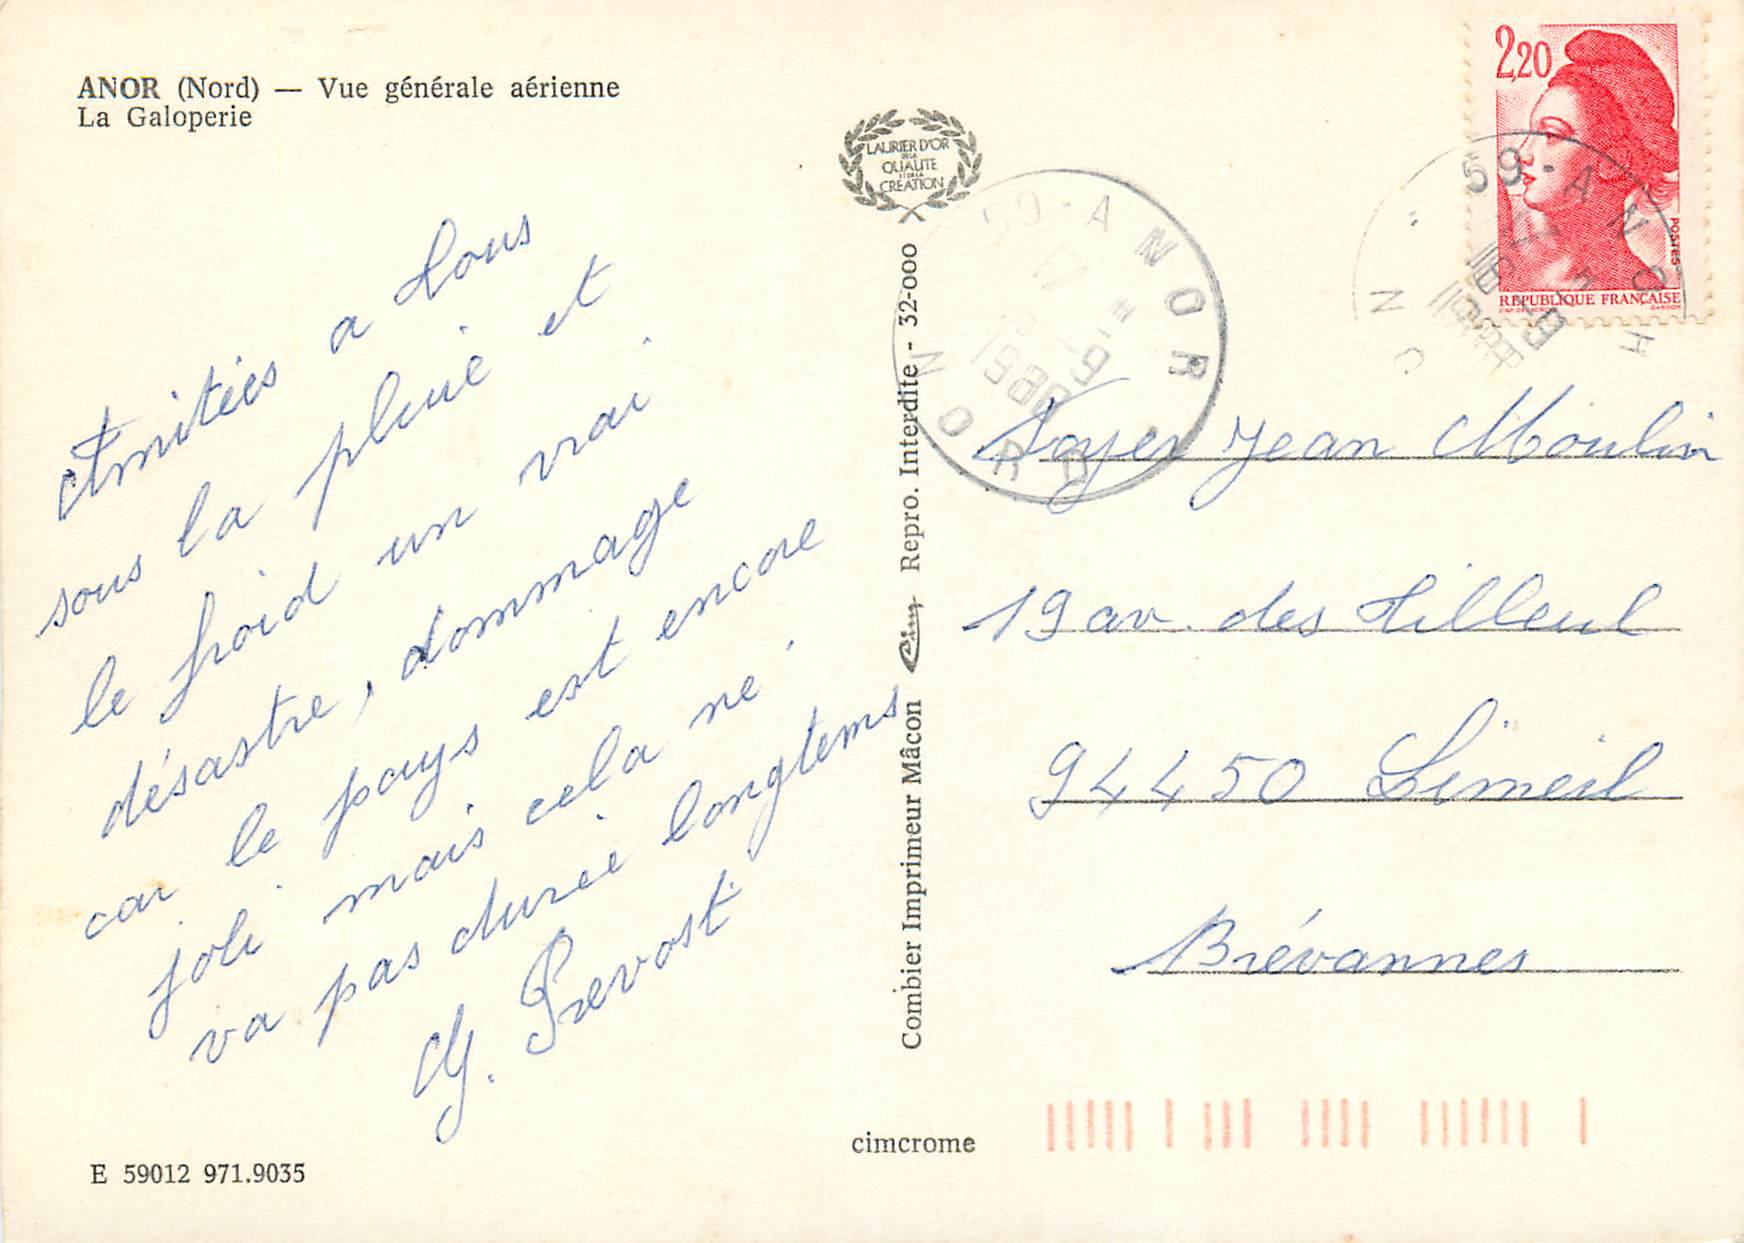 ANOR (Nord) — Vue générale aérienne
La Galoperie
Amitiés a tous
sous la pluie et
le froid un vrai
désastre, dommage
car le pays est encore
joli mais cela ne
va pas durée longtems
Prevost
E 59012 971.9035
LAURIER D'OR
DE LA
QUALITE
ET DE LA
CREATION
Combier Imprimeur Mâcon Cim Repro. Interdite - 32-000
cimcrome
2,20
POSTES
REPUBLIQUE FRANÇAISE
59-ANOR
NORD
59-ANOR
Foyer Jean Moulin
19 av. des tilleul
94450 Limeil
Brévannes